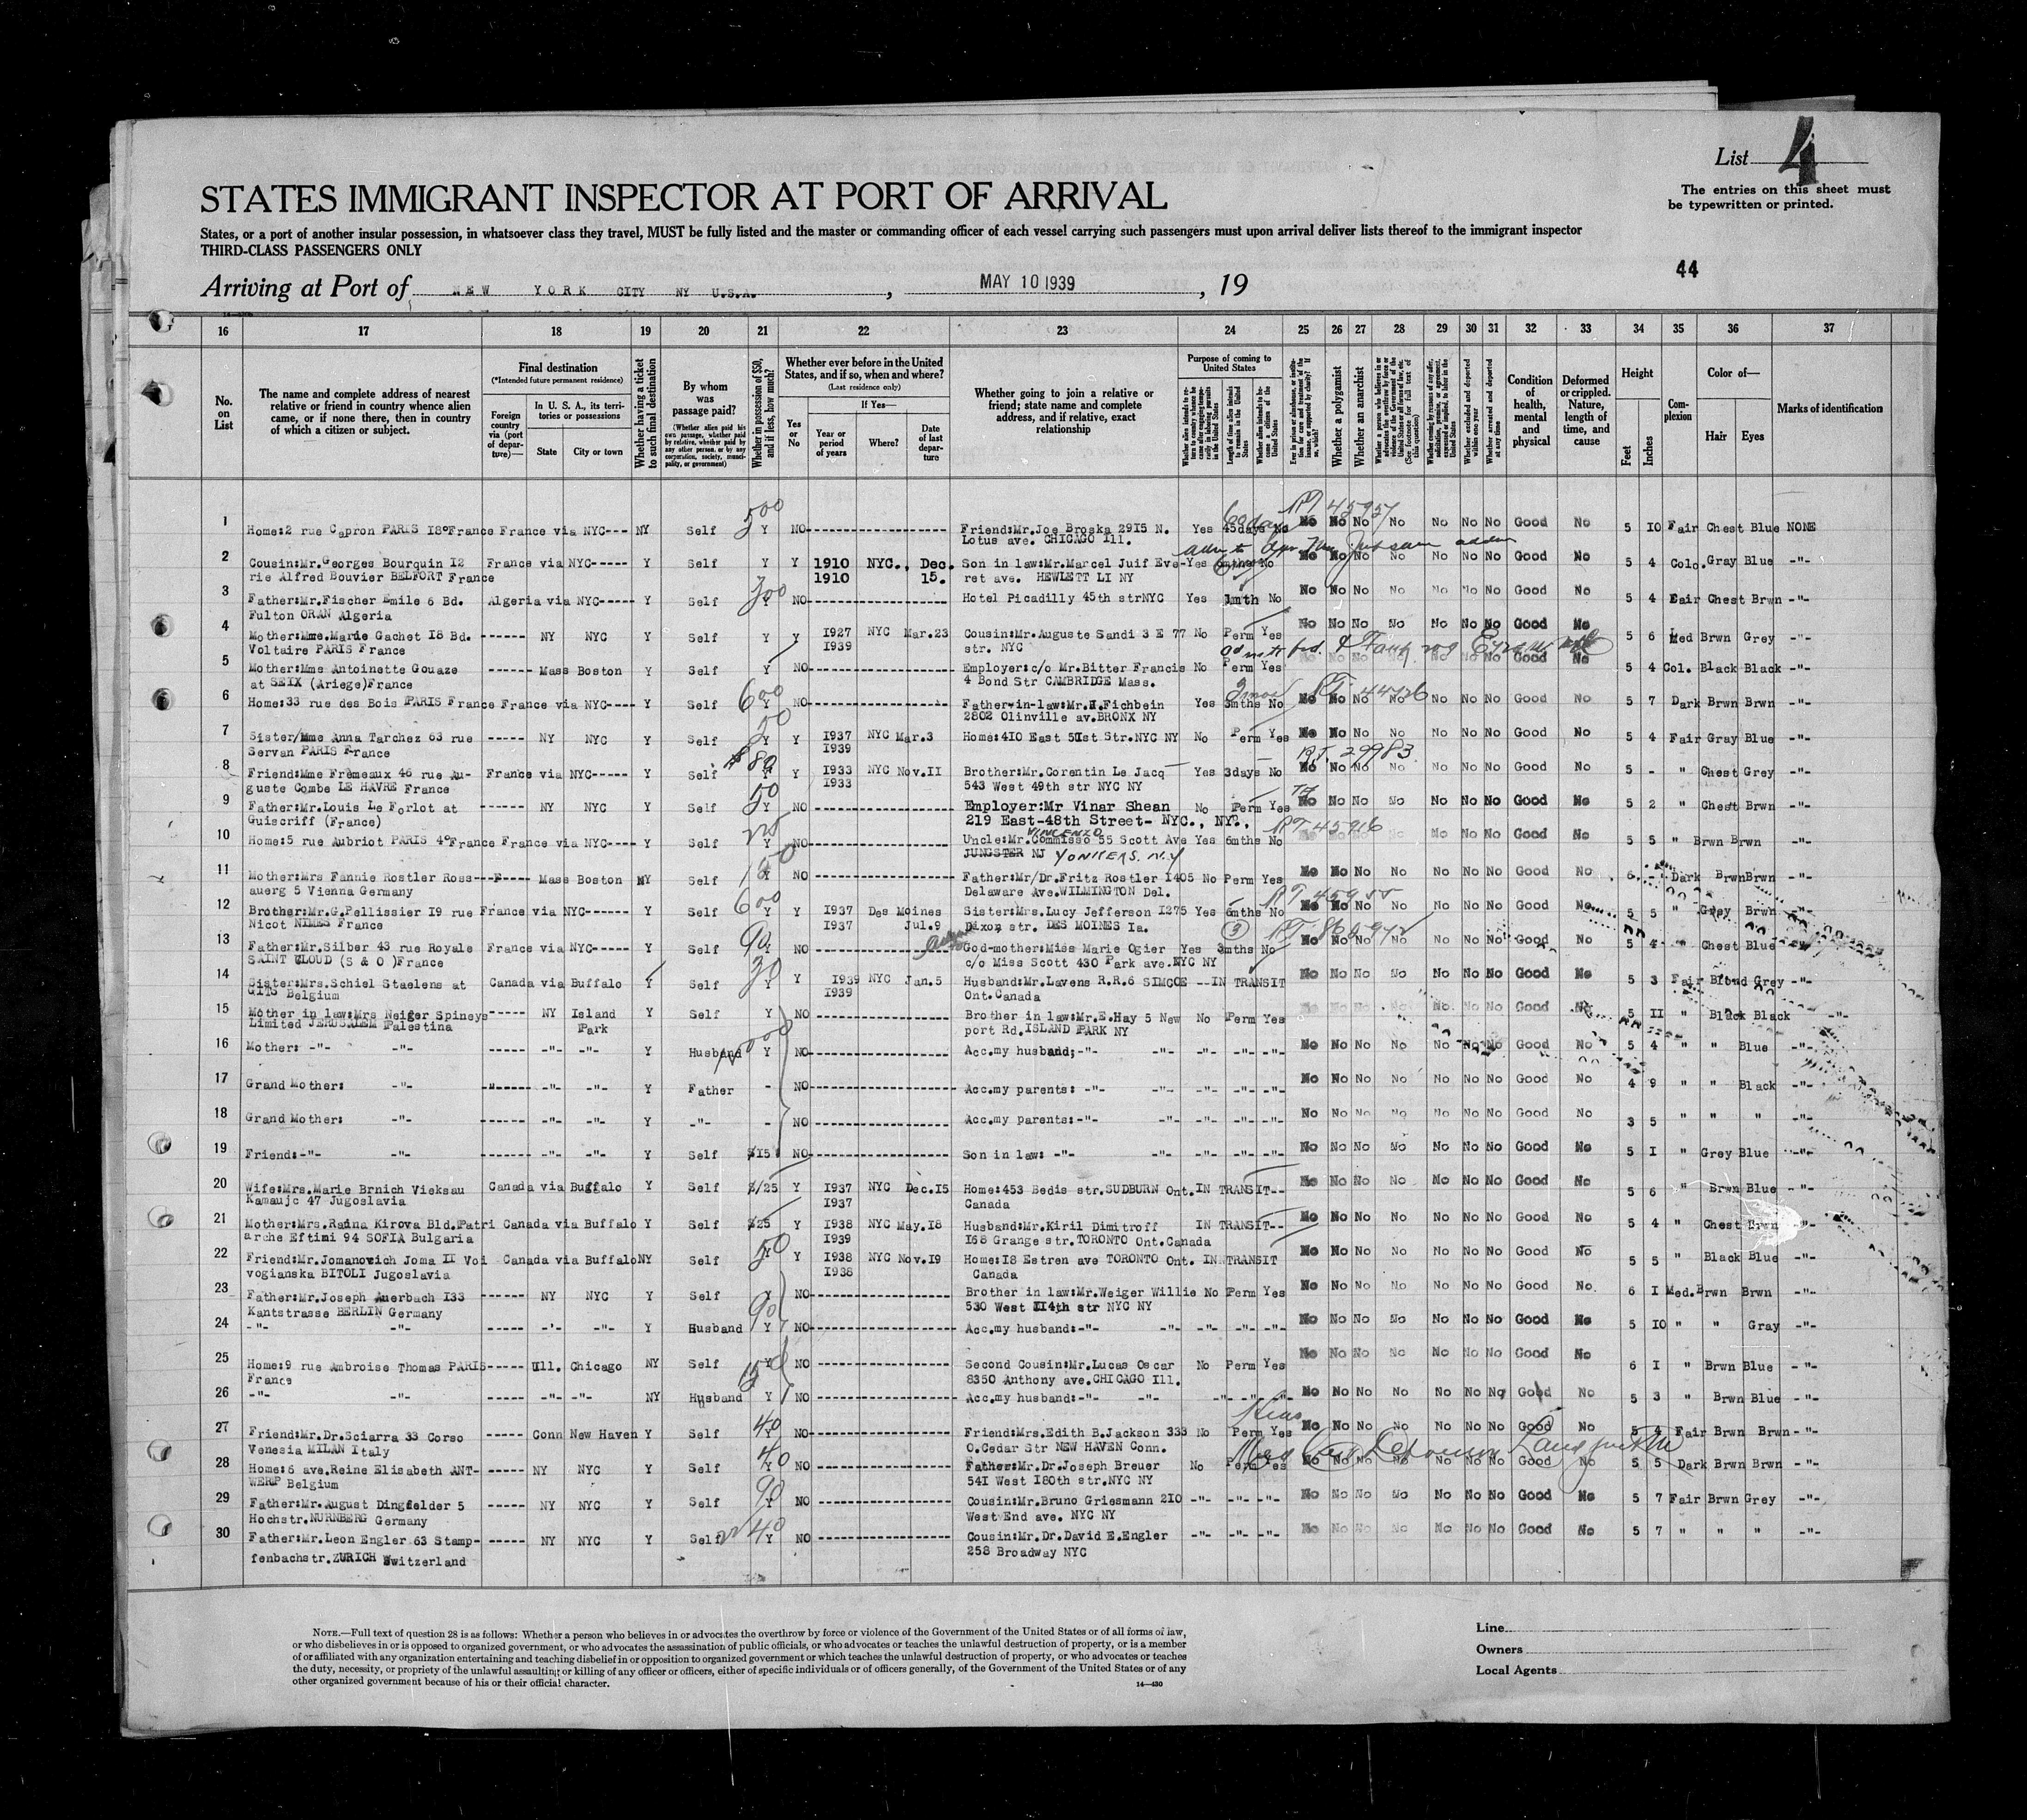 List 4
The entries on this sheet must
be typewritten or printed.
STATES IMMIGRANT INSPECTOR AT PORT OF ARRIVAL
States, or a port of another insular possession, in whatsoever class they travel, MUST be fully listed and the master or commanding officer of each vessel carrying such passengers must upon arrival deliver lists thereof to the immigrant inspector
THIRD-CLASS PASSENGERS ONLY
44
Arriving at Port of NEW YORK CITY NY U.S.A., MAY 10 1939, 19
16 17 18 19 20 21 22 23 24 25 26 27 28 29 30 31 32 33 34 35 36 37
No. on List
The name and complete address of nearest relative or friend in country whence alien came, or if none there, then in country of which a citizen or subject.
Final destination
(*Intended future permanent residence)
Foreign country via (port of departure)—
In U. S. A., its territories or possessions
State
City or town
Whether having a ticket to such final destination
By whom was passage paid?
(Whether alien paid his own passage, whether paid by relative, whether paid by any other person, or by any corporation, society, municipality, or government)
Whether in possession of $50, and if less, how much?
Whether ever before in the United States, and if so, when and where?
(Last residence only)
Yes or No
If Yes—
Year or period of years
Where?
Date of last departure
Whether going to join a relative or friend; state name and complete address, and if relative, exact relationship
Purpose of coming to United States
Whether a polygamist
Whether an anarchist
Condition of health, mental and physical
Deformed or crippled. Nature, length of time, and cause
Height
Feet
Inches
Complexion
Color of—
Hair
Eyes
Marks of identification
1 Home:2 rue Capron PARIS 18°France France via NYC--- NY Self 500 Y NO Friend:Mr.Joe Broska 2915 N. Yes 45days No No No No No No No No Good No 5 10 Fair Chest Blue NONE
Lotus ave. CHICAGO Ill.
60 days RT 45957
2 Cousin:Mr.Georges Bourquin 12 France via NYC----- Y Self Y Y 1910 NYC., Dec. Son in law:Mr.Marcel Juif Eve- Yes 6mths No No No No No No No No Good No 5 4 Colo. Gray Blue -"-
rie Alfred Bouvier BELFORT France 1910 15. ret ave. HEWLETT LI NY
3 Father:Mr.Fischer Emile 6 Bd. Algeria via NYC----- Y Self 300 Y NO Hotel Picadilly 45th strNYC Yes 1mth No No No No No No No No Good No 5 4 Fair Chest Brwn -"-
Fulton ORAN Algeria
4 Mother:Mme.Marie Gachet 18 Bd. ------ NY NYC Y Self Y Y 1927 NYC Mar.23 Cousin:Mr.Auguste Sandi 3 E 77 No Perm Yes No No No No No No No Good No 5 6 Med Brwn Grey -"-
Voltaire PARIS France 1939 str. NYC
5 Mother:Mme Antoinette Gouaze ------ Mass Boston Y Self Y NO Employer:c/o Mr.Bitter Francis No Perm Yes No No No No No No No Good No 5 4 Col. Black Black -"-
at SEIX (Ariege)France 4 Bond Str CAMBRIDGE Mass.
6 Home:33 rue des Bois PARIS France France via NYC---- Y Self 600 Y NO Father-in-law:Mr.H.Fichbein Yes 3mths No No No No No No No No Good No 5 7 Dark Brwn Brwn -"-
2802 Olinville av.BRONX NY
7 Sister/Mme Anna Tarchez 63 rue ----- NY NYC Y Self 50 Y Y 1937 NYC Mar.3 Home:410 East 51st Str.NYC NY No Perm Yes No No No No No No No Good No 5 4 Fair Gray Blue -"-
Servan PARIS France 1939
RT. 29983
8 Friend:Mme Fremeaux 46 rue Au- France via NYC----- Y Self $80 Y Y 1933 NYC Nov.11 Brother:Mr.Corentin Le Jacq Yes 3days No No No No No No No No Good No 5 - " Chest Grey -"-
guste Combe LE HAVRE France 1933 543 West 49th str NYC NY
9 Father:Mr.Louis Le Forlot at ------ NY NYC Y Self 50 Y NO Employer:Mr Vinar Shean No Perm Yes No No No No No No No Good No 5 2 " Chest Brwn -"-
Guiscriff (France) 219 East-48th Street- NYC., NY.,
RT 45916
10 Home:5 rue Aubriot PARIS 4°France France via NYC---- Y Self Y NO Uncle:Mr.Commisso 55 Scott Ave Yes 6mths No No No No No No No No Good No 5 5 " Brwn Brwn -"-
VINCENZO
JUNGSTER NJ YONKERS. N.Y
11 Mother:Mrs Fannie Rostler Ross- ---- Mass Boston NY Self 150 Y NO Father:Mr/Dr.Fritz Rostler 1405 No Perm Yes No No No No No No No Good No 6 - Dark Brwn Brwn -"-
auerg 5 Vienna Germany Delaware Ave.WILMINGTON Del.
12 Brother:Mr.G.Pellissier 19 rue France via NYC------ Y Self 600 Y Y 1937 Des Moines Sister:Mrs.Lucy Jefferson 1275 Yes 6mths No No No No No No No No Good No 5 5 " Grey Brwn -"-
Nicot NIMES France 1937 Jul.9 Dixon str. DES MOINES Ia.
13 Father:Mr.Silber 43 rue Royale France via NYC----- Y Self 90 Y NO God-mother:Miss Marie Ogier Yes 3mths No No No No No No No No Good No 5 4 " Chest Blue -"-
SAINT CLOUD (S & O )France c/o Miss Scott 430 Park ave.NYC NY
14 Sister:Mrs.Schiel Staelens at Canada via Buffalo Y Self 30 Y Y 1939 NYC Jan.5 Husband:Mr.Lavens R.R.6 SIMCOE --IN TRANSIT No No No No No No No Good No 5 3 Fair Blond Grey -"-
GITS Belgium 1939 Ont.Canada
15 Mother in law:Mrs Neiger Spineys ----- NY Island Park Y Self Y NO Brother in law:Mr.E.Hay 5 New No Perm Yes No No No No No No No Good No 5 11 " Black Black -"-
Limited JERUSALEM Palestina port Rd.ISLAND PARK NY
16 Mother: -"- -"- ----- -"- -"- Y Husband Y NO Acc.my husband:-"- -"- -"- -"- -"- No No No No No No No Good No 5 4 " " Blue -"-
17 Grand Mother: -"- ------ -"- -"- Y Father - NO Acc.my parents: -"- -"- -"- -"- -"- No No No No No No No Good No 4 9 " " Black -"-
18 Grand Mother: -"- ------ -"- -"- Y -"- - NO Acc.my parents:-"- -"- -"- -"- -"- No No No No No No No Good No 3 5 " " " -"-
19 Friend:-"- -"- ------- -"- -"- Y Self $15 NO Son in law: -"- -"- -"- -"- -"- No No No No No No No Good No 5 1 " Grey Blue -"-
20 Wife:Mrs.Marie Brnich Vieksau Canada via Buggalo Y Self $/25 Y 1937 NYC Dec.15 Home:453 Bedis str.SUDBURN Ont.IN TRANSIT-- No No No No No No No Good No 5 6 " Brwn Blue -"-
Kamaujc 47 Jugoslavia 1937 Canada
21 Mother:Mrs.Raina Kirova Bld.Patri Canada via Buffalo Y Self $25 Y 1938 NYC May.18 Husband:Mr.Kiril Dimitroff IN TRANSIT-- No No No No No No No Good No 5 4 " Chest Brwn -"-
arche Eftimi 94 SOFIA Bulgaria 1939 168 Grange str.TORONTO Ont.Canada
22 Friend:Mr.Jomanovich Joma II Voi Canada via Buffalo NY Self 50 Y Y 1938 NYC Nov.19 Home:18 Estren ave TORONTO Ont. IN TRANSIT No No No No No No No Good No 5 5 " Black Blue -"-
vogianska BITOLI Jugoslavia 1938 Canada
23 Father:Mr.Joseph Auerbach 133 ----- NY NYC Y Self Y NO Brother in law:Mr.Weiger Willie No Perm Yes No No No No No No No Good No 6 1 Med.Brwn Brwn -"-
Kantstrasse BERLIN Germany 90 530 West 114th str NYC NY
24 -"- -"- ----- -"- -"- Y Husband Y NO Acc.my husband:-"- -"- -"- -"- -"- No No No No No No No Good No 5 10 " " Gray -"-
25 Home:9 rue Ambroise Thomas PARIS----- Ill. Chicago NY Self 150 Y NO Second Cousin:Mr.Lucas Oscar No Perm Yes No No No No No No No Good No 6 1 " Brwn Blue -"-
France 8350 Anthony ave.CHICAGO Ill.
26 -"- -"- ----- -"- -"- NY Husband Y NO Acc.my husband:-"- -"- -"- -"- -"- No No No No No No No Good No 5 3 " Brwn Blue -"-
27 Friend:Mr.Dr.Sciarra 33 Corso ----- Conn New Haven Y Self 40 Y NO Friend:Mrs.Edith B.Jackson 333 No Perm Yes No No No No No No No Good No 5 4 Fair Brwn Brwn -"-
Venesia MILAN Italy O.Cedar Str NEW HAVEN Conn.
28 Home:6 ave.Reine Elisabeth ANT- ----- NY NYC Y Self 40 Y NO Father:Mr.Dr.Joseph Breuer No Perm Yes No No No No No No No Good No 5 5 Dark Brwn Brwn -"-
WERP Belgium 541 West 180th str.NYC NY
29 Father:Mr.August Dingfelder 5 ----- NY NYC Y Self 90 Y NO Cousin:Mr.Bruno Griesmann 210 -"- -"- -"- No No No No No No No Good No 5 7 Fair Brwn Grey -"-
Hochstr.NURNBERG Germany West End ave. NYC NY
30 Father:Mr.Leon Engler 63 Stamp- ----- NY NYC Y Self 40 Y NO Cousin:Mr.Dr.David E.Engler -"- -"- -"- No No No No No No No Good No 5 7 " " " -"-
fenbachstr.ZURICH Switzerland 258 Broadway NYC
NOTE.—Full text of question 28 is as follows: Whether a person who believes in or advocates the overthrow by force or violence of the Government of the United States or of all forms of law,
or who disbelieves in or is opposed to organized government, or who advocates the assassination of public officials, or who advocates or teaches the unlawful destruction of property, or is a member
of or affiliated with any organization entertaining and teaching disbelief in or opposition to organized government or which teaches the unlawful destruction of property, or who advocates or teaches
the duty, necessity, or propriety of the unlawful assaulting or killing of any officer or officers, either of specific individuals or of officers generally, of the Government of the United States or of any
other organized government because of his or their official character.
14—430
Line
Owners
Local Agents